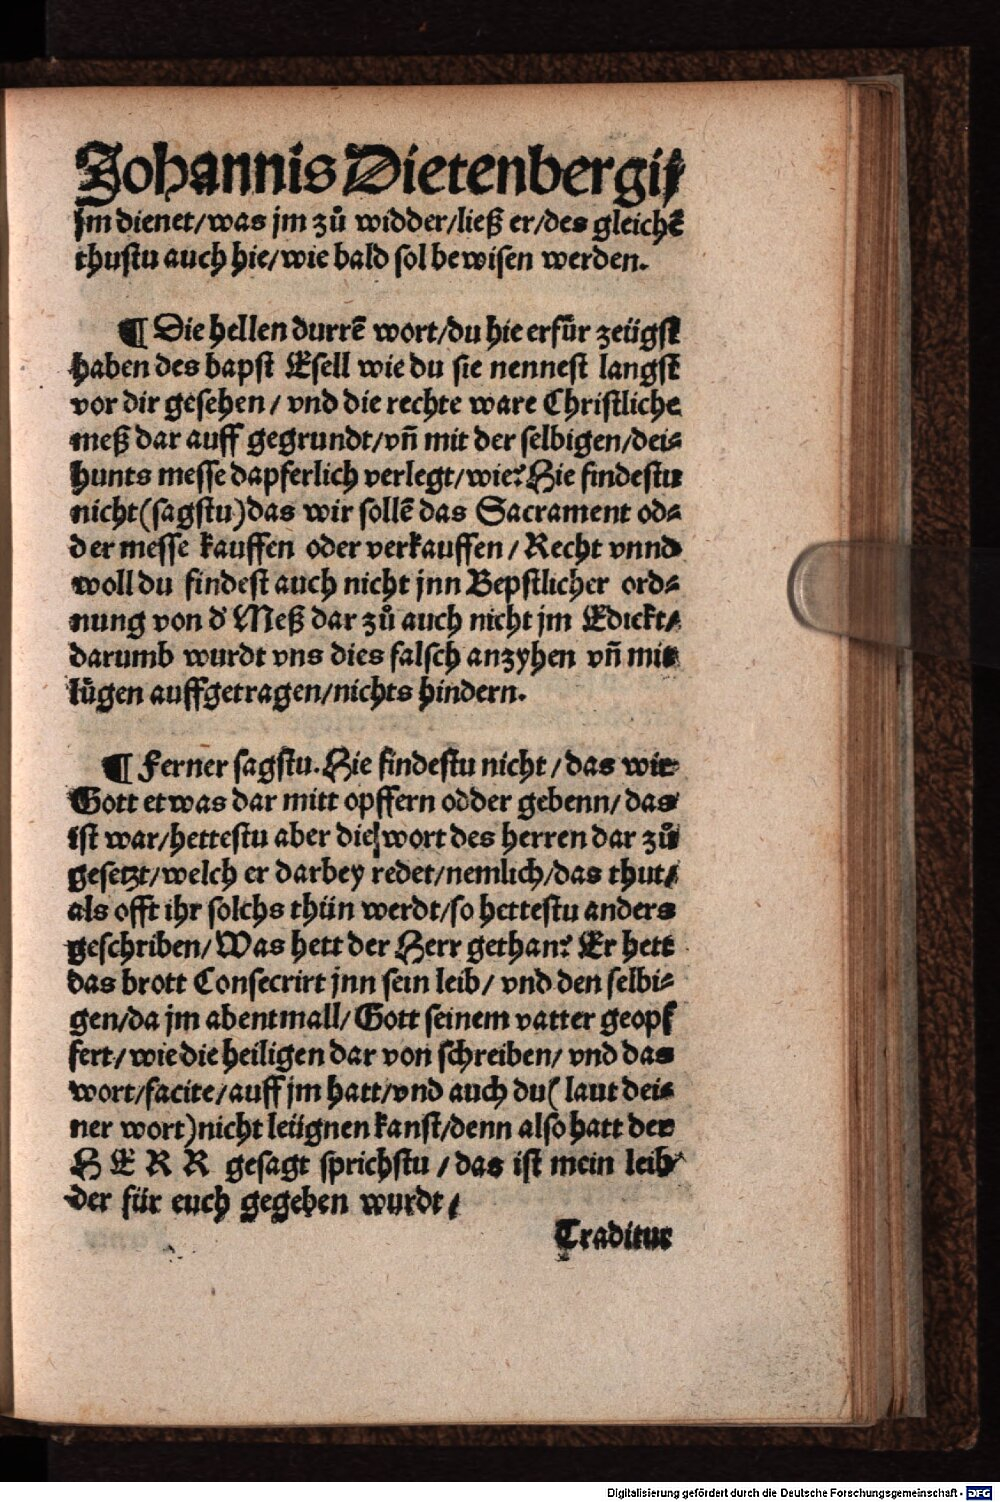 Johannis Dietenbergij
jm dienet/was jm zů widder/ließ er/des gleichẽ
thustu auch hie/wie bald sol bewisen werden.
¶ Die hellen durrẽ wort/du hie erfür zeügst
haben des bapst Esell wie du sie nennest langst
vor dir gesehen/ vnd die rechte ware Christliche
meß dar auff gegrundt/vñ mit der selbigen/dei⸗
hunts messe dapferlich verlegt/wie? Hie findestu
nicht(sagstu)das wir sollẽ das Sacrament od⸗
der messe kauffen oder verkauffen/ Recht vnnd
woll du findest auch nicht jnn Bepstlicher ord⸗
nung von d' Meß dar zů auch nicht jm Edickt/
darumb wurdt vns dies falsch anzyhen vñ mit
lügen auffgetragen/nichts hindern.
¶ Ferner sagstu. Hie findestu nicht/das wir
Gott etwas dar mitt opffern odder gebenn/das
ist war/hettestu aber die wort des herren dar zů
gesetzt/welch er darbey redet/nemlich/das thut/
als offt ihr solchs thün werdt/so hettestu anders
geschriben/Was hett der Herr gethan? Er hett
das brott Consecrirt jnn sein leib/ vnd den selbi⸗
gen/da jm abentmall/Gott seinem vatter geopf
fert/wie die heiligen dar von schreiben/ vnd das
wort/facite/auff jm hatt/vnd auch du( laut dei⸗
ner wort)nicht leügnen kanst/denn also hatt der
HERR gesagt sprichstu/das ist mein leib
der für euch gegeben wurdt/
Traditur
Digitalisierung gefördert durch die Deutsche Forschungsgemeinschaft - DFG